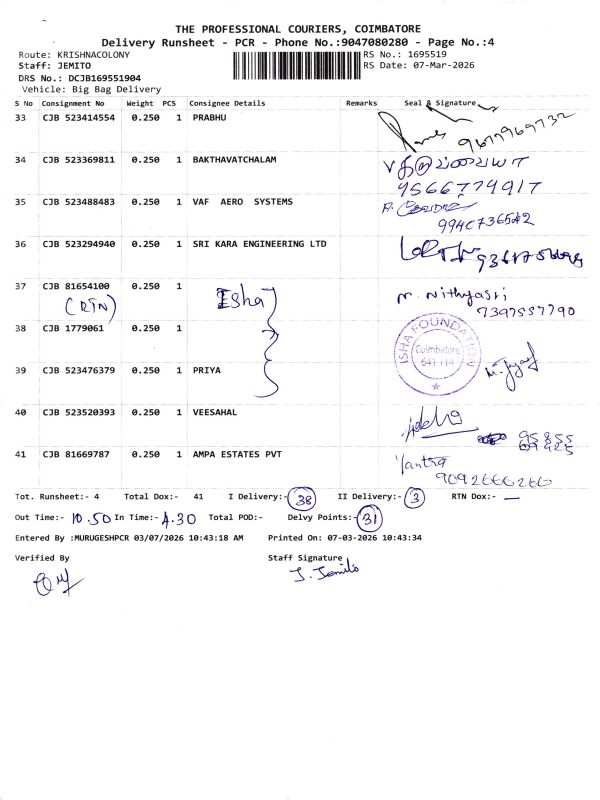 THE PROFESSIONAL COURIERS, COIMBATORE
Delivery Runsheet - PCR - Phone No.:9047080280 - Page No.:4
Route: KRISHNACOLONY RS No.: 1695519
Staff: JEMITO RS Date: 07-Mar-2026
DRS No.: DCJB169551904
Vehicle: Big Bag Delivery
S No Consignment No Weight PCS Consignee Details Remarks Seal & Signature
33 CJB 523414554 0.250 1 PRABHU
9677969732
34 CJB 523369811 0.250 1 BAKTHAVATCHALAM
9566779917
35 CJB 523488483 0.250 1 VAF AERO SYSTEMS
9940736542
36 CJB 523294940 0.250 1 SRI KARA ENGINEERING LTD
37 CJB 81654100 0.250 1 Esha M. Nithyasri
(RTN) 7397557790
38 CJB 1779061 0.250 1
ISHA FOUNDATION
Coimbatore
641 114
39 CJB 523476379 0.250 1 PRIYA
40 CJB 523520393 0.250 1 VEESAHAL
95855
69425
41 CJB 81669787 0.250 1 AMPA ESTATES PVT Yantra
9092666266
Tot. Runsheet:- 4 Total Dox:- 41 I Delivery:- 38 II Delivery:- 3 RTN Dox:- —
Out Time:- 10.50 In Time:- 4.30 Total POD:- Delvy Points:- 31
Entered By :MURUGESHPCR 03/07/2026 10:43:18 AM Printed On: 07-03-2026 10:43:34
Verified By Staff Signature
J. Jemito